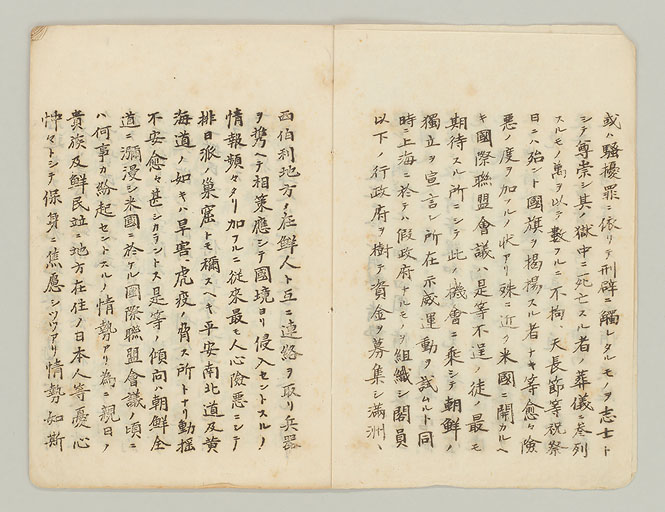 或ハ騒擾罪ニ依リテ刑辟ニ觸レタルモノヲ志士ト
シテ尊崇シ其ノ獄中ニ死亡スル者ノ葬儀ニ參列
スルモノ萬ヲ以テ數フルニ不拘天長節等祝祭
日ニハ殆ント國旗ヲ掲揚スル者ナキ等愈々險
惡ノ度ヲ加フルノ状アリ殊ニ近ク米國ニ開カルヘ
キ國際聯盟會議ハ是等不逞ノ徒ノ最モ
期待スル所ニシテ此ノ機會ニ乘シテ朝鮮ノ
獨立ヲ宣言シ所在示威運動ヲ試ムルト同
時ニ上海ニ於テハ假政府ナルモノヲ組織シ閣員
以下ノ行政府ヲ樹テ資金ヲ募集シ滿洲、
西伯利地方ノ在鮮人ト互ニ連絡ヲ取リ兵器
ヲ携ヘテ相策應シテ國境ヨリ侵入セントスルノ
情報頻々タリ加フルニ従來最モ人心險惡ニシテ
排日派ノ巢窟トモ稱スヘキ平安南北道及黄
海道ノ如キハ旱害、虎疫ノ脅ス所トナリ動揺
不安愈々甚シカラントス是等ノ傾向ハ朝鮮全
道ニ瀰漫シ米國ニ於ケル國際聯盟會議ノ頃ニ
ハ何事カ勃起セントスルノ情勢アリ為ニ親日ノ
貴族及鮮民竝ニ地方在住ノ日本人等憂心
忡々トシテ保身ニ焦慮シツツアリ情勢如斯